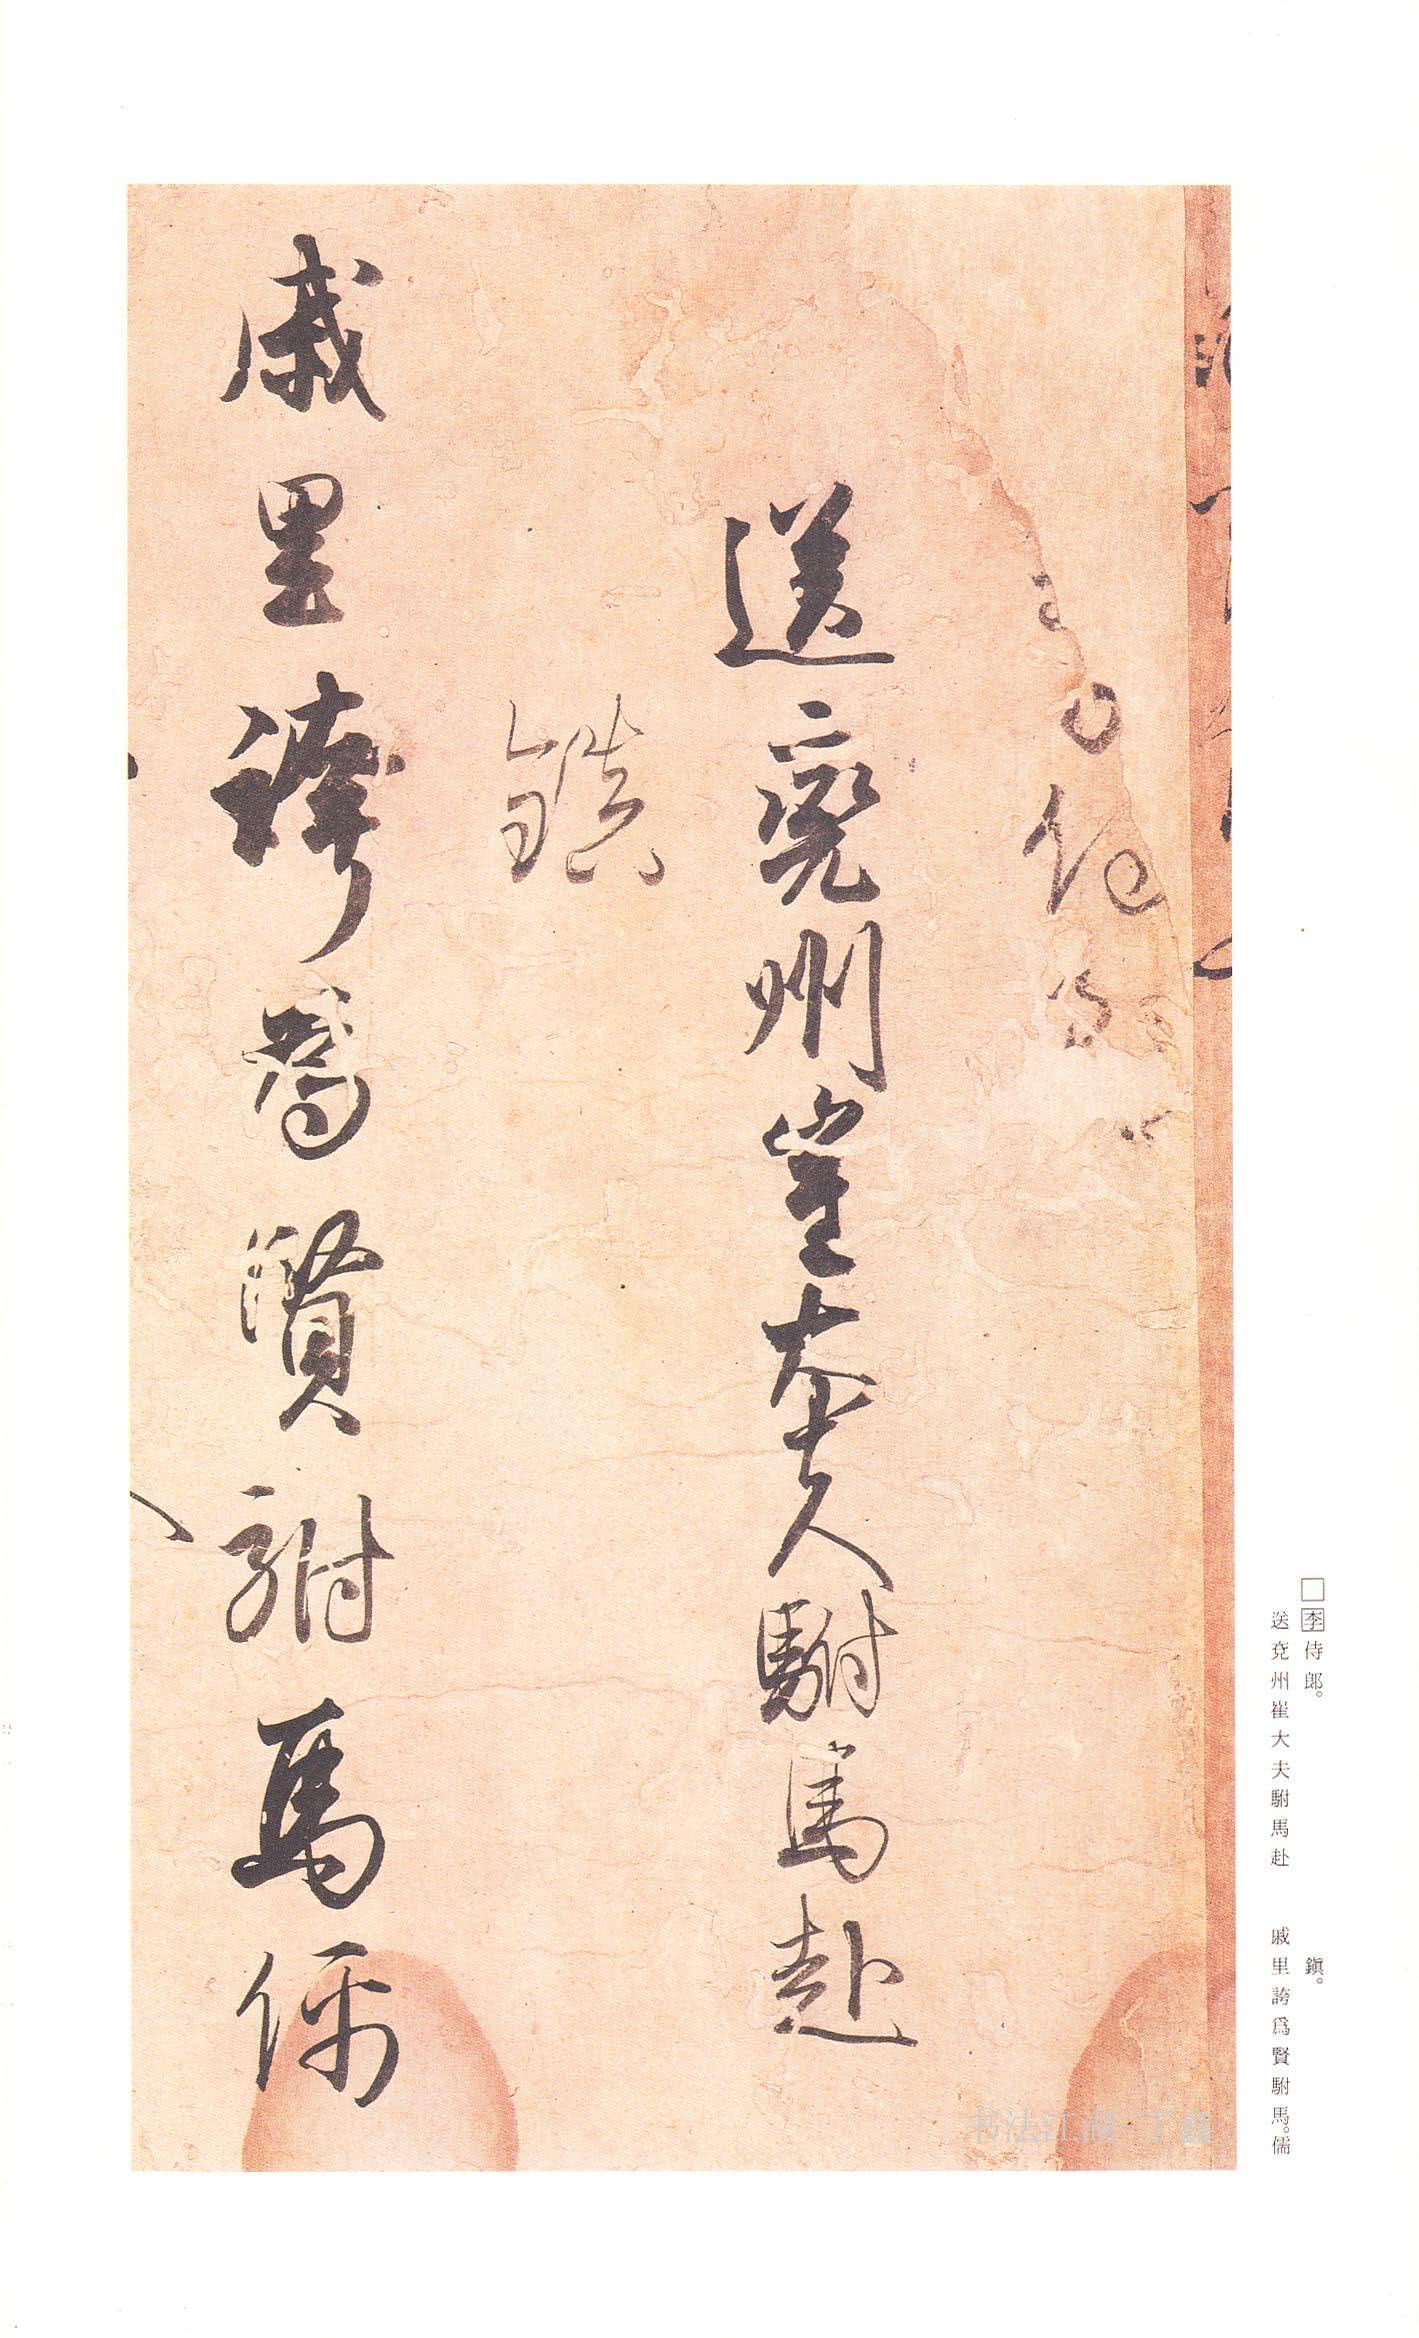 侍郎
送兗州崔大夫駙馬赴
鎮
戚里誇為賢駙馬儒
□李侍郎。
送兗州崔大夫駙馬赴
鎮。
戚里誇爲賢駙馬。儒
书法江湖